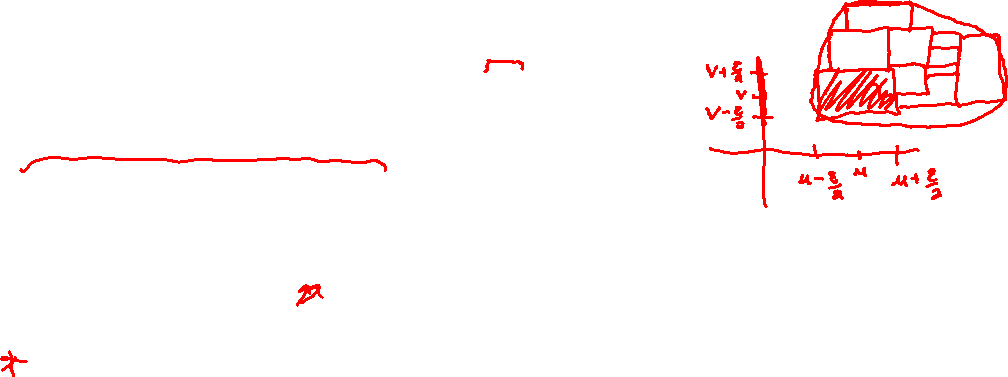 v + ε/2
v
v - ε/2
u - ε/2 u u + ε/2
*